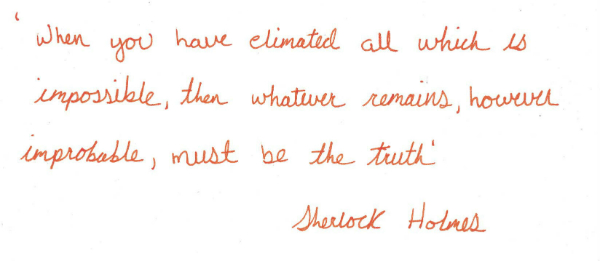 'When you have elimated all which is
impossible, then whatever remains, however
improbable, must be the truth'
Sherlock Holmes